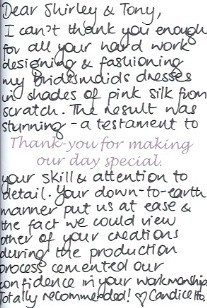 Dear Shirley & Tony,
I can't thank you enough
for all your hard work
designing & fashioning
my bridesmaids dresses
in shades of pink silk from
scratch. The result was
stunning - a testament to
Thank-you for making
our day special.
your skill & attention to
detail. Your down-to-earth
manner put us at ease &
the fact we could view
other of your creations
during the production
process cemented our
confidence in your workmanship
Totally recommended! Candice